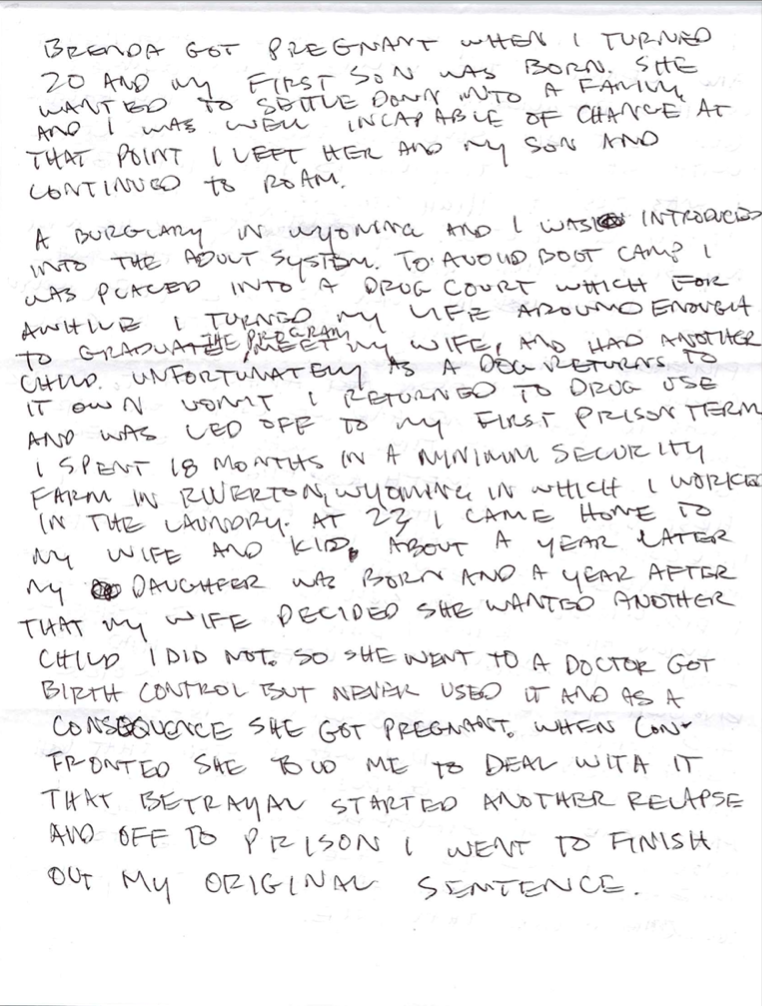 BRENDA GOT PREGNANT WHEN I TURNED
20 AND MY FIRST SON WAS BORN. SHE
WANTED TO SETTLE DOWN INTO A FAMILY
AND I WAS WELL INCAPABLE OF CHANGE AT
THAT POINT I LEFT HER AND MY SON AND
CONTINUED TO ROAM.
A BURGLARY IN WYOMING AND I WAS INTRODUCED
INTO THE ADULT SYSTEM. TO AVOID BOOT CAMP I
WAS PLACED INTO A DRUG COURT WHICH FOR
AWHILE I TURNED MY LIFE AROUND ENOUGH
TO GRADUATE THE PROGRAM, MEET MY WIFE, AND HAD ANOTHER
CHILD. UNFORTUNATELY AS A DOG RETURNS TO
IT OWN VOMIT I RETURNED TO DRUG USE
AND WAS LED OFF TO MY FIRST PRISON TERM
I SPENT 18 MONTHS IN A MINIMUM SECURITY
FARM IN RIVERTON, WYOMING IN WHICH I WORKED
IN THE LAUNDRY. AT 23 I CAME HOME TO
MY WIFE AND KID, ABOUT A YEAR LATER
MY DAUGHTER WAS BORN AND A YEAR AFTER
THAT MY WIFE DECIDED SHE WANTED ANOTHER
CHILD I DID NOT. SO SHE WENT TO A DOCTOR GOT
BIRTH CONTROL BUT NEVER USED IT AND AS A
CONSEQUENCE SHE GOT PREGNANT. WHEN CON-
FRONTED SHE TOLD ME TO DEAL WITH IT
THAT BETRAYAL STARTED ANOTHER RELAPSE
AND OFF TO PRISON I WENT TO FINISH
OUT MY ORIGINAL SENTENCE.